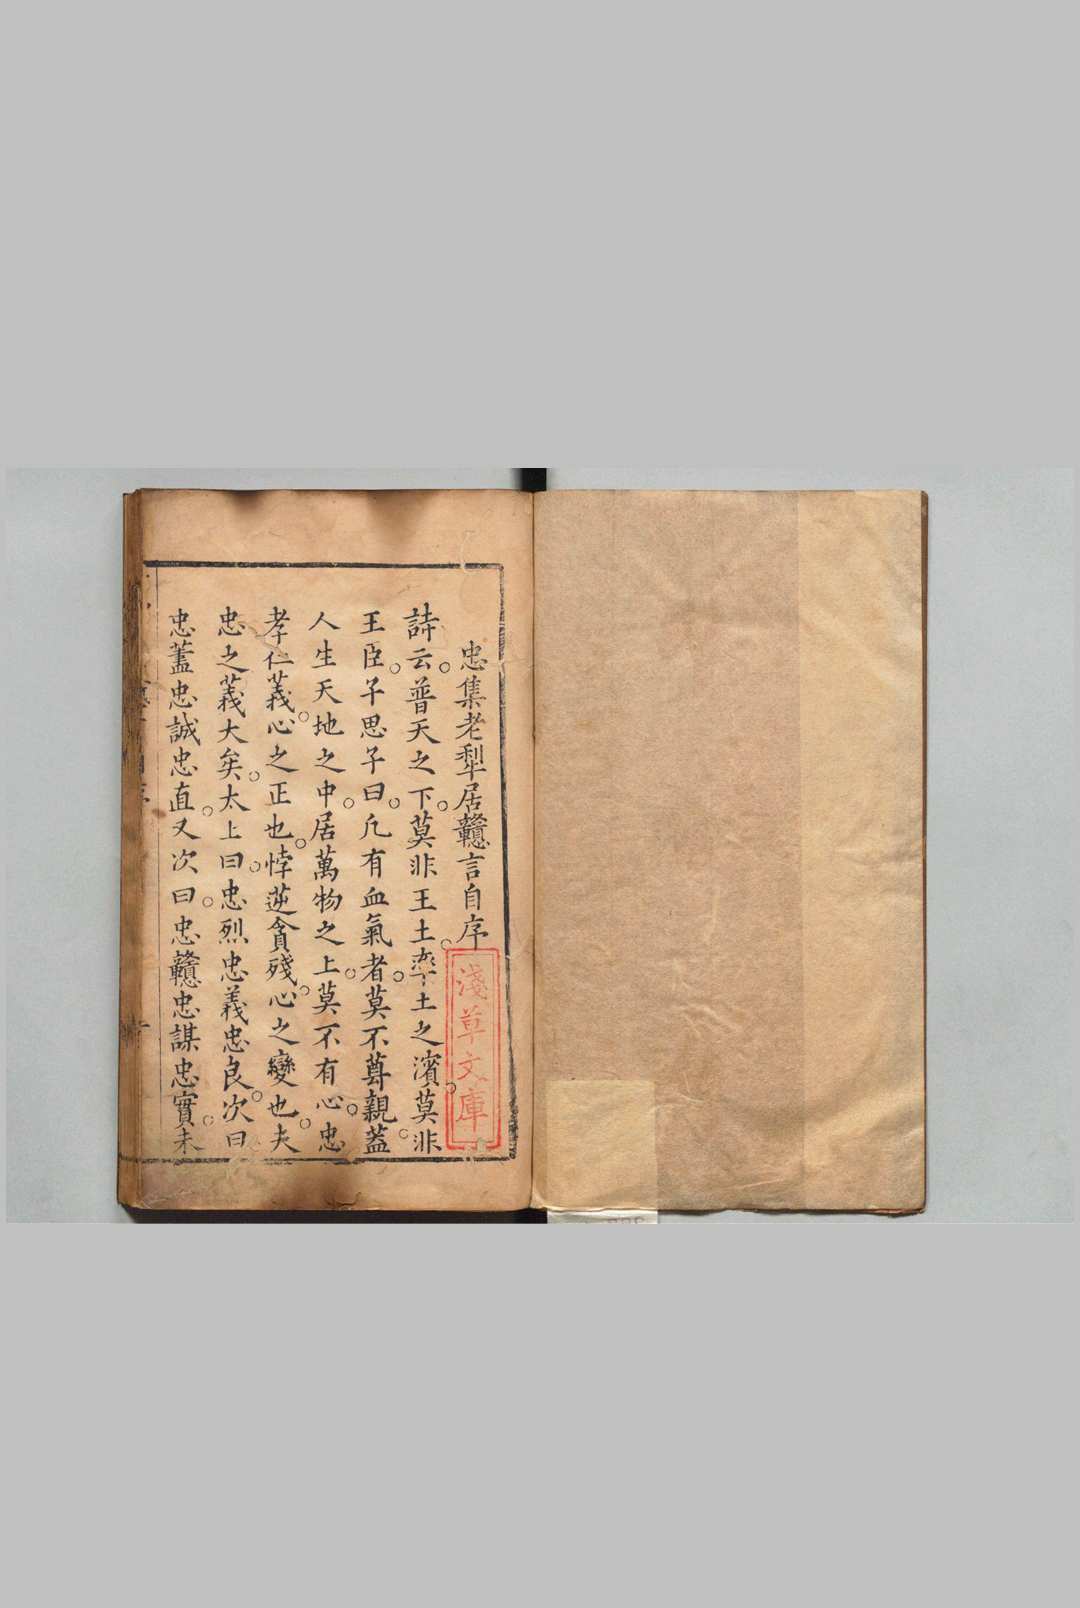 忠集老犂居戇言自序
淺草文庫
詩云。普天之下。莫非王土。率土之濱。莫非
王臣。子思子曰。凡有血氣者。莫不尊親。蓋
人生天地之中。居萬物之上。莫不有心。忠
孝仁義。心之正也。悖逆貪殘。心之變也。夫
忠之義大矣。太上曰。忠烈忠義忠良。次曰
忠藎忠誠忠直。又次曰。忠戇忠謀忠實。未